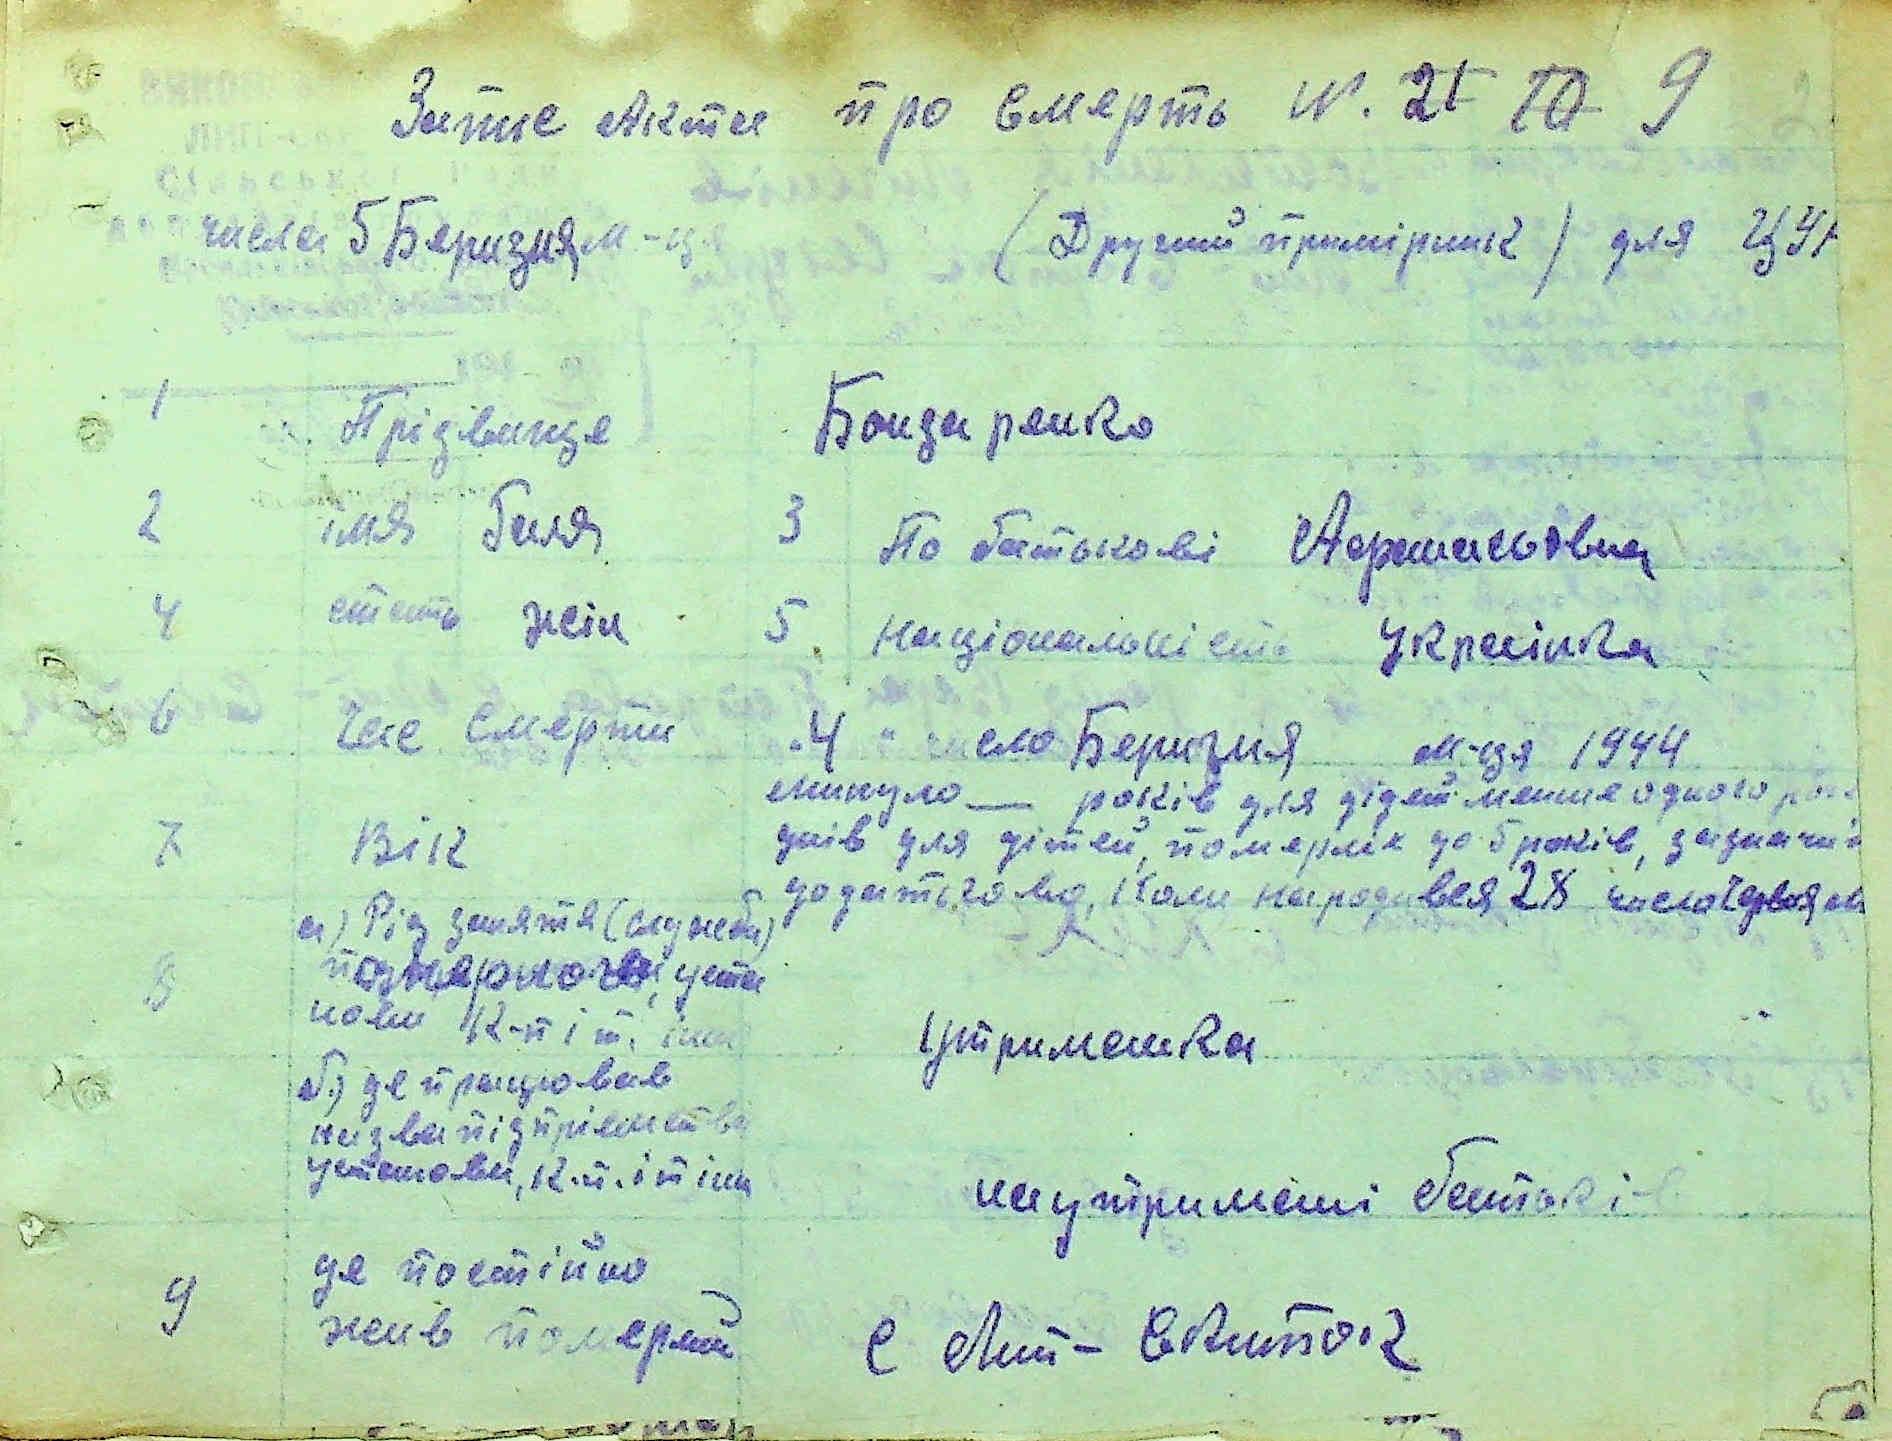 Запис Акта про Смерть №. 21 10 9
числа 5 Березня м-ця (Другий примірник) для ЦУН
1 Прізвище Бондаренко
2 імя Галя 3 По батькові
4 стать жін 5 національність Українка
6 Час Смерти 4 " сло Березня м-ця 1944
минуло — років для дітей менше одного рок
7 Вік днів для дітей, померлих до 5 років, зазначит
додатково, коли народився 28 числа Червня м
8 а) Рід заняття (служби)
померлого, уста
нови К-п і т. інш
утриманка
б) де працював
назва підпріємства
установи, к.п. і т інш
на утримані батькі-в
9 де постійно
жив померлий
С Лип-